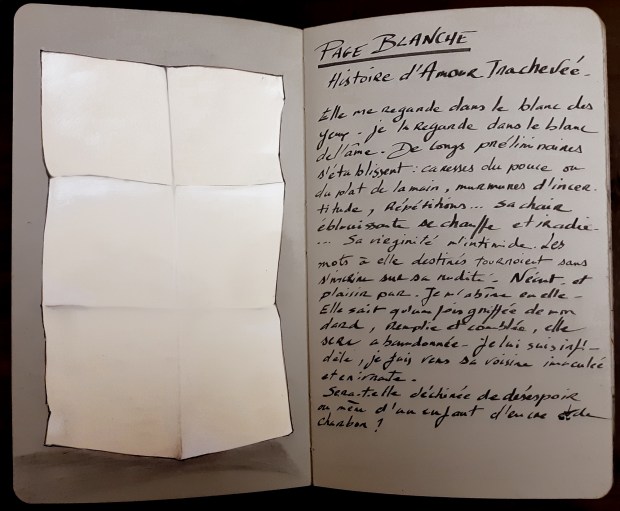 PAGE BLANCHE
Histoire d'Amour Inachevée.
Elle me regarde dans le blanc des
yeux - je la regarde dans le blanc
de l'âme - De longs préliminaires
s'établissent : caresses du pouce ou
du plat de la main, murmures d'incer-
titude, Répétitions... sa chair
éblouissante se chauffe et irradie
... Sa virginité m'intimide. Les
mots à elle destinés tournoient sans
s'inscrire sur sa nudité - Néant - et
plaisir pur. Je m'abîme en elle -
Elle sait qu'une fois griffée de mon
dard, Remplie et comblée, elle
sera abandonnée - je lui suis infi-
dèle, je fuis vers sa voisine immaculée
et enivrante -
Sera-t-elle déchirée de désespoir
ou mère d'un enfant d'encre et de
charbon ?